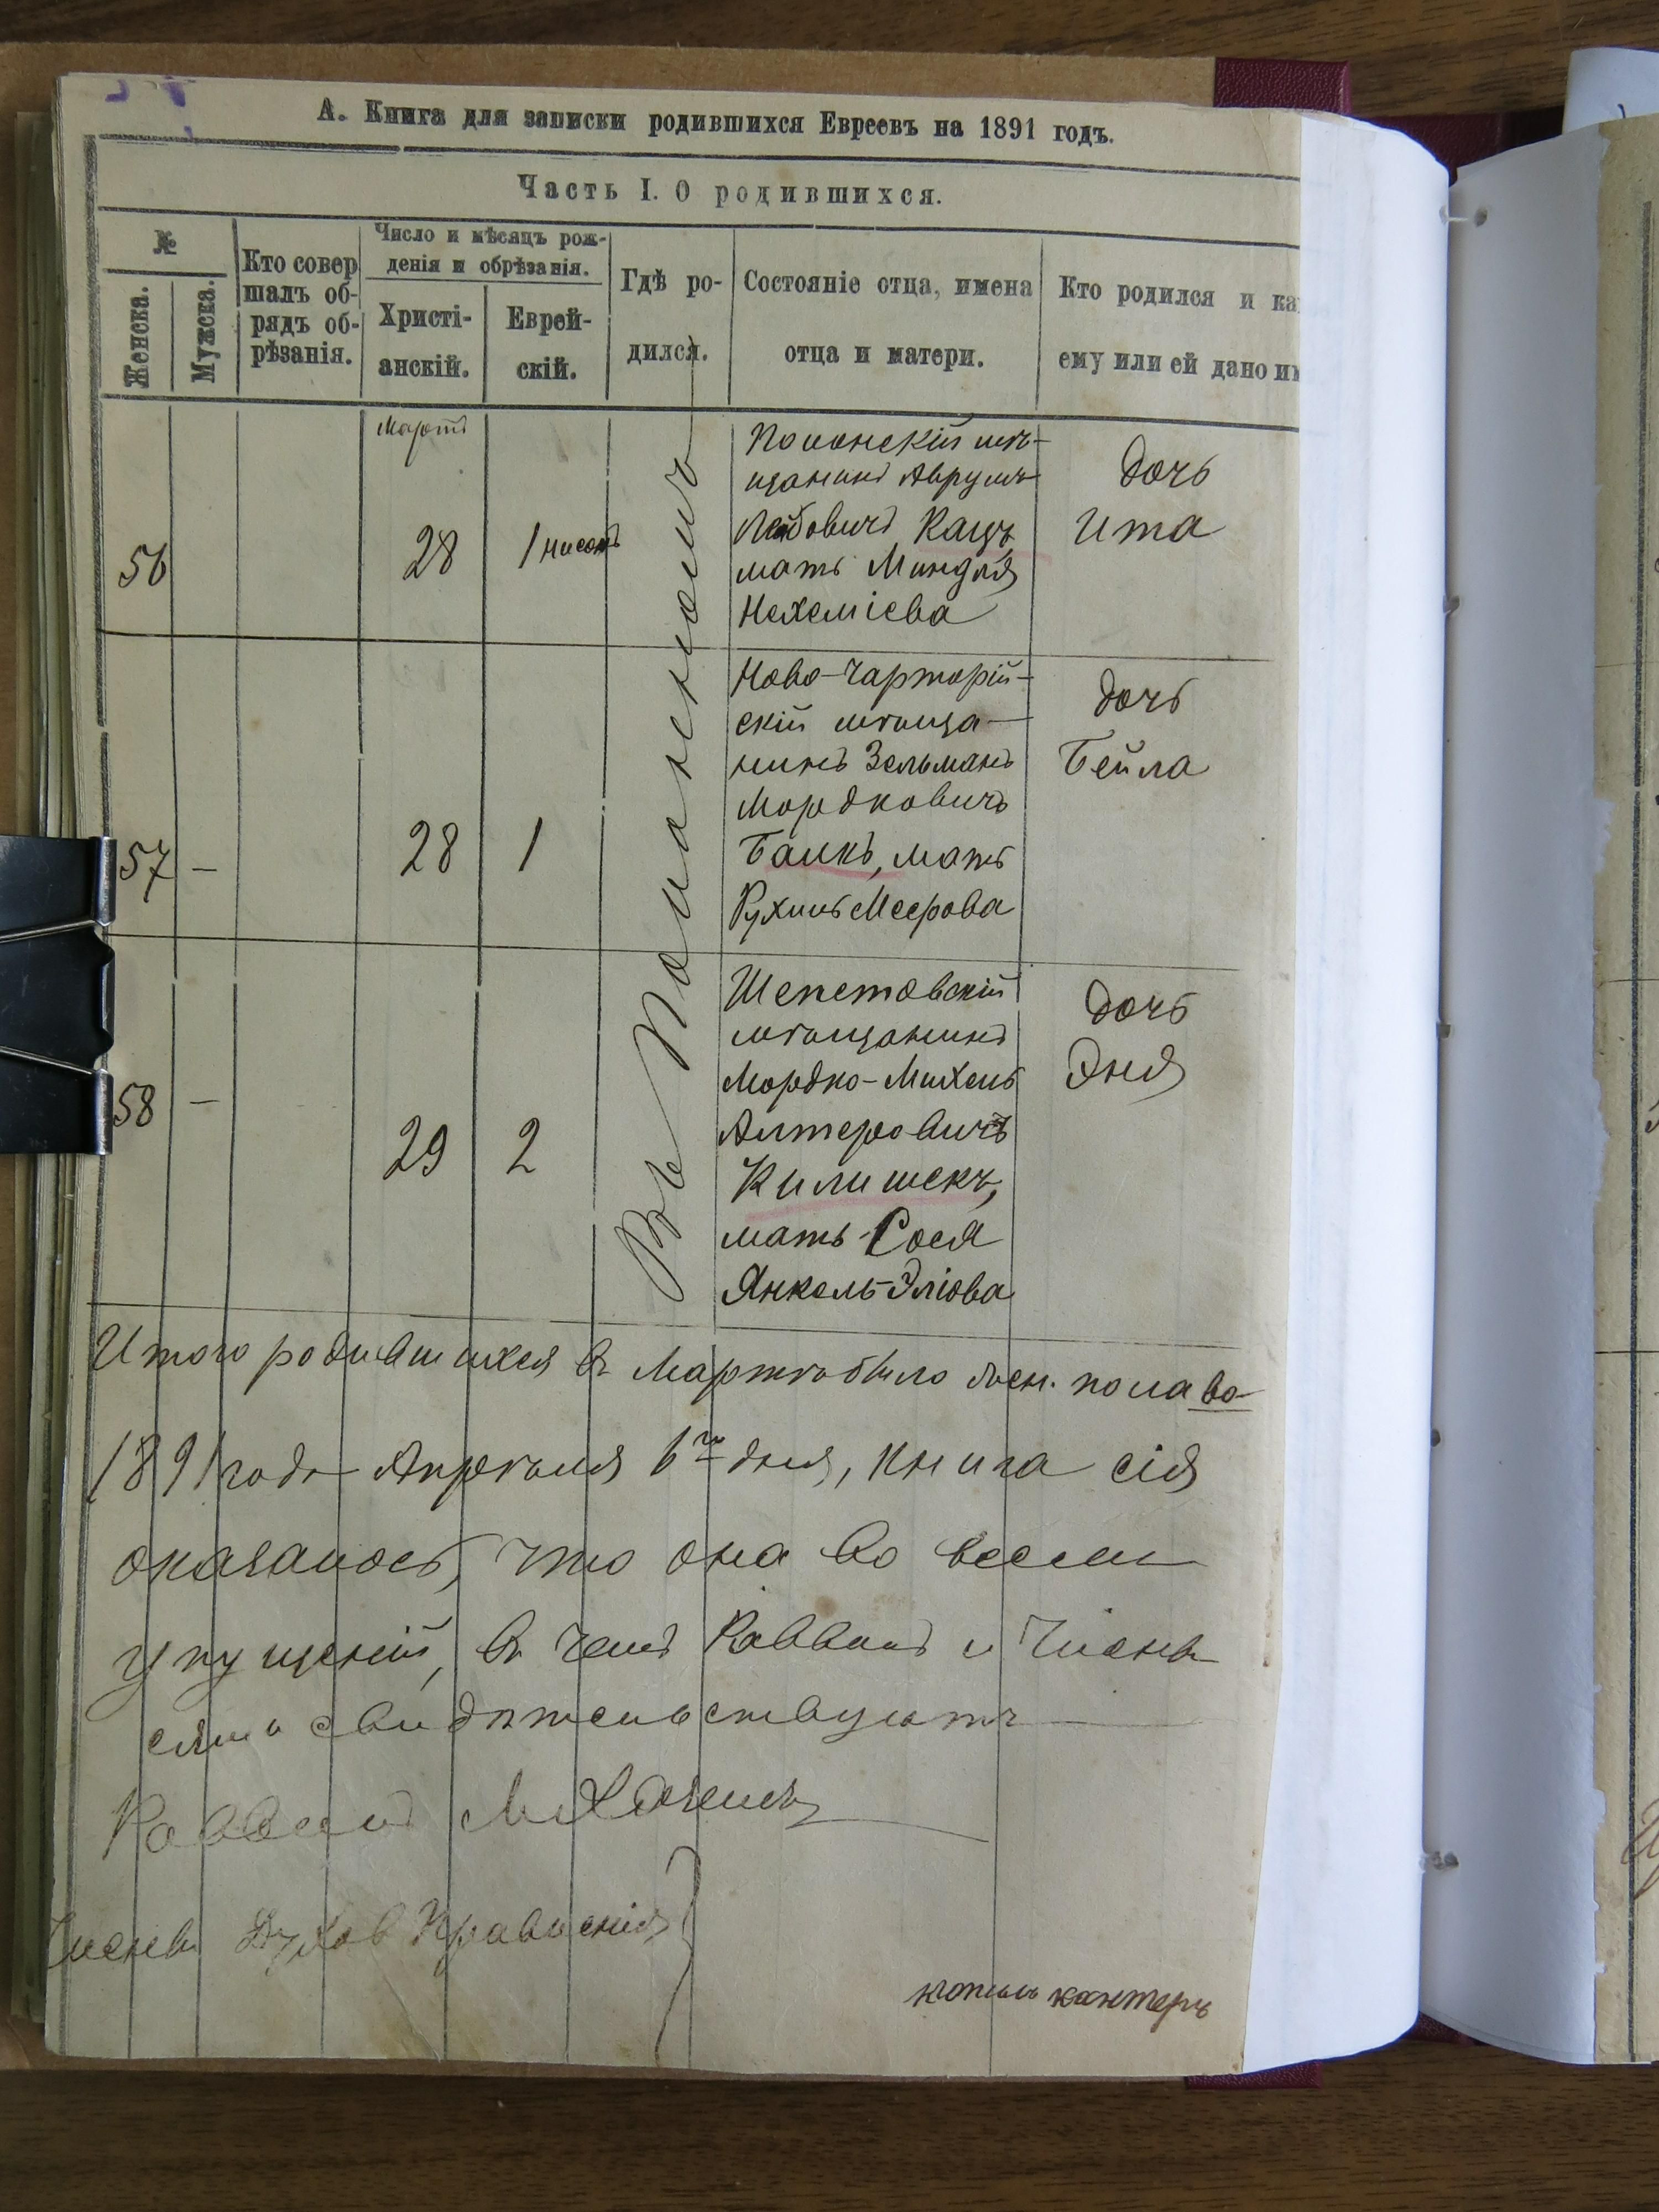 А. Книга для записки родившихся Евреевъ на 1891 годъ.
Часть I. О родившихся.
№
Женска.
Мужска.
Кто совер
шалъ об-
рядъ об-
рѣзанія.
Число и мѣсяцъ рож-
денія и обрѣзанія.
Христі-
анскій.
Еврей-
скій.
Гдѣ ро-
дился.
Состояніе отца, имена
отца и матери.
Кто родился и ка
ему или ей дано им
Мартъ
56
28
1 нисанъ
Въ Полонномъ
Полонскій мѣ-
щанинъ Аврумъ
Лейбовичъ Кацъ,
мать Миндля
Нехеміева
Дочь
Ита
57 –
28
1
Ново-Чарторій-
скій мѣща-
нинъ Зельманъ
Мордковичъ
Баикъ, мать
Рухиль Меерова
Дочь
Бейла
58 –
29
2
Шепетовскій
мѣщанинъ
Мордко-Михель
Алтеровичъ
Килишекъ,
мать Сося
Янкель-Эліова
Дочь
Эня
Итого родившихся въ Мартѣ было жен. пола во-
1891 года Апрѣля 6го дня, книга сія
оказалось, что она во всемъ
упущеній, въ чемъ Раввинъ и Члены
симъ свидѣтельствуютъ
Раввинъ
Члены Духов Правленія
Копель Кантеръ